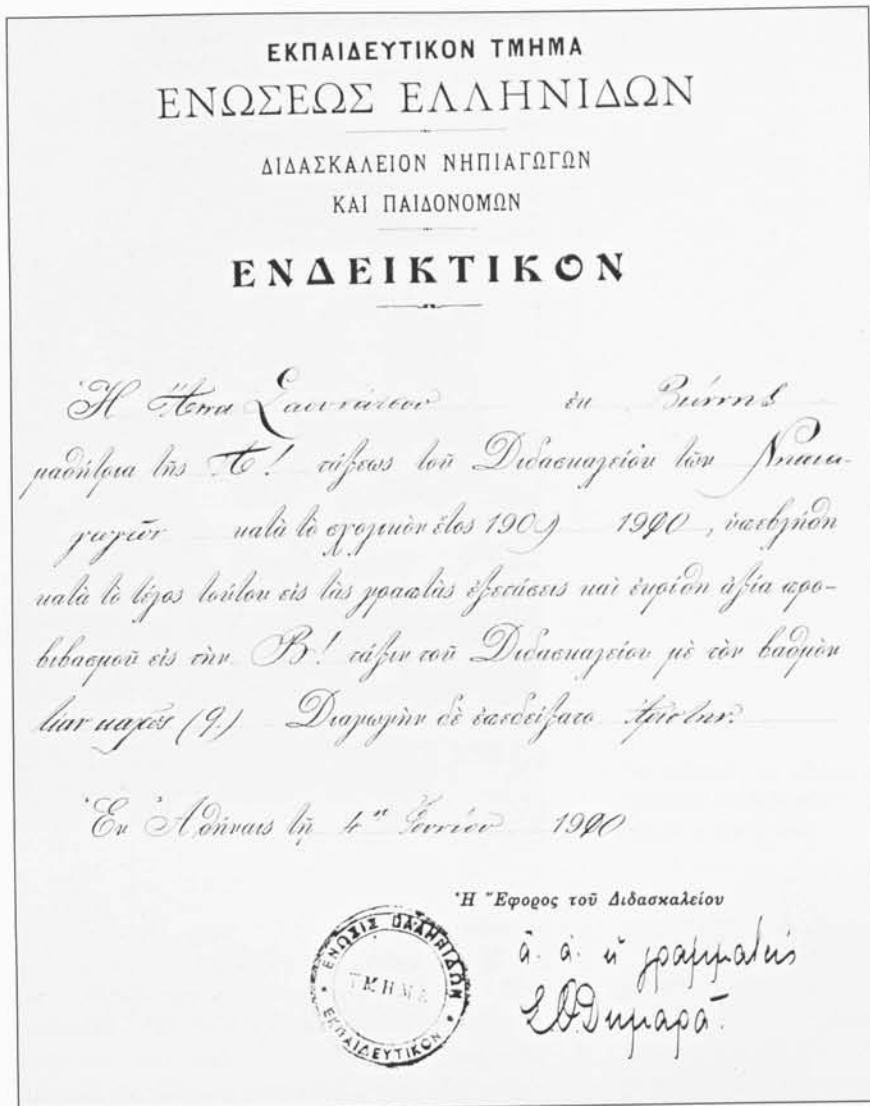 ΕΚΠΑΙΔΕΥΤΙΚΟΝ ΤΜΗΜΑ
ΕΝΩΣΕΩΣ ΕΛΛΗΝΙΔΩΝ
ΔΙΔΑΣΚΑΛΕΙΟΝ ΝΗΠΙΑΓΩΓΩΝ
ΚΑΙ ΠΑΙΔΟΝΟΜΩΝ
ΕΝΔΕΙΚΤΙΚΟΝ
Ἡ Ἄννα ἐκ
μαθήτρια τῆς Α! τάξεως τοῦ Διδασκαλείου τῶν Νηπια-
γωγῶν κατὰ τὸ σχολικὸν ἔτος 1909 1910, ὑπεβλήθη
κατὰ τὸ τέλος τούτου εἰς τὰς γραπτὰς ἐξετάσεις καὶ ἐκρίθη ἀξία προ-
βιβασμοῦ εἰς τὴν Β! τάξιν τοῦ Διδασκαλείου μὲ τὸν βαθμὸν
λίαν καλῶς (9.) Διαγωγὴν δὲ ἐπεδείξατο Ἀρίστην.
Ἐν Ἀθήναις τῇ 4ῃ Ἰουνίου 1910
Ἡ Ἔφορος τοῦ Διδασκαλείου
ἀ. ἀ. ἡ γραμματεὺς
Δημαρᾶ.
ΕΝΩΣΙΣ ΕΛΛΗΝΙΔΩΝ
ΤΜΗΜΑ
ΕΚΠΑΙΔΕΥΤΙΚΟΝ